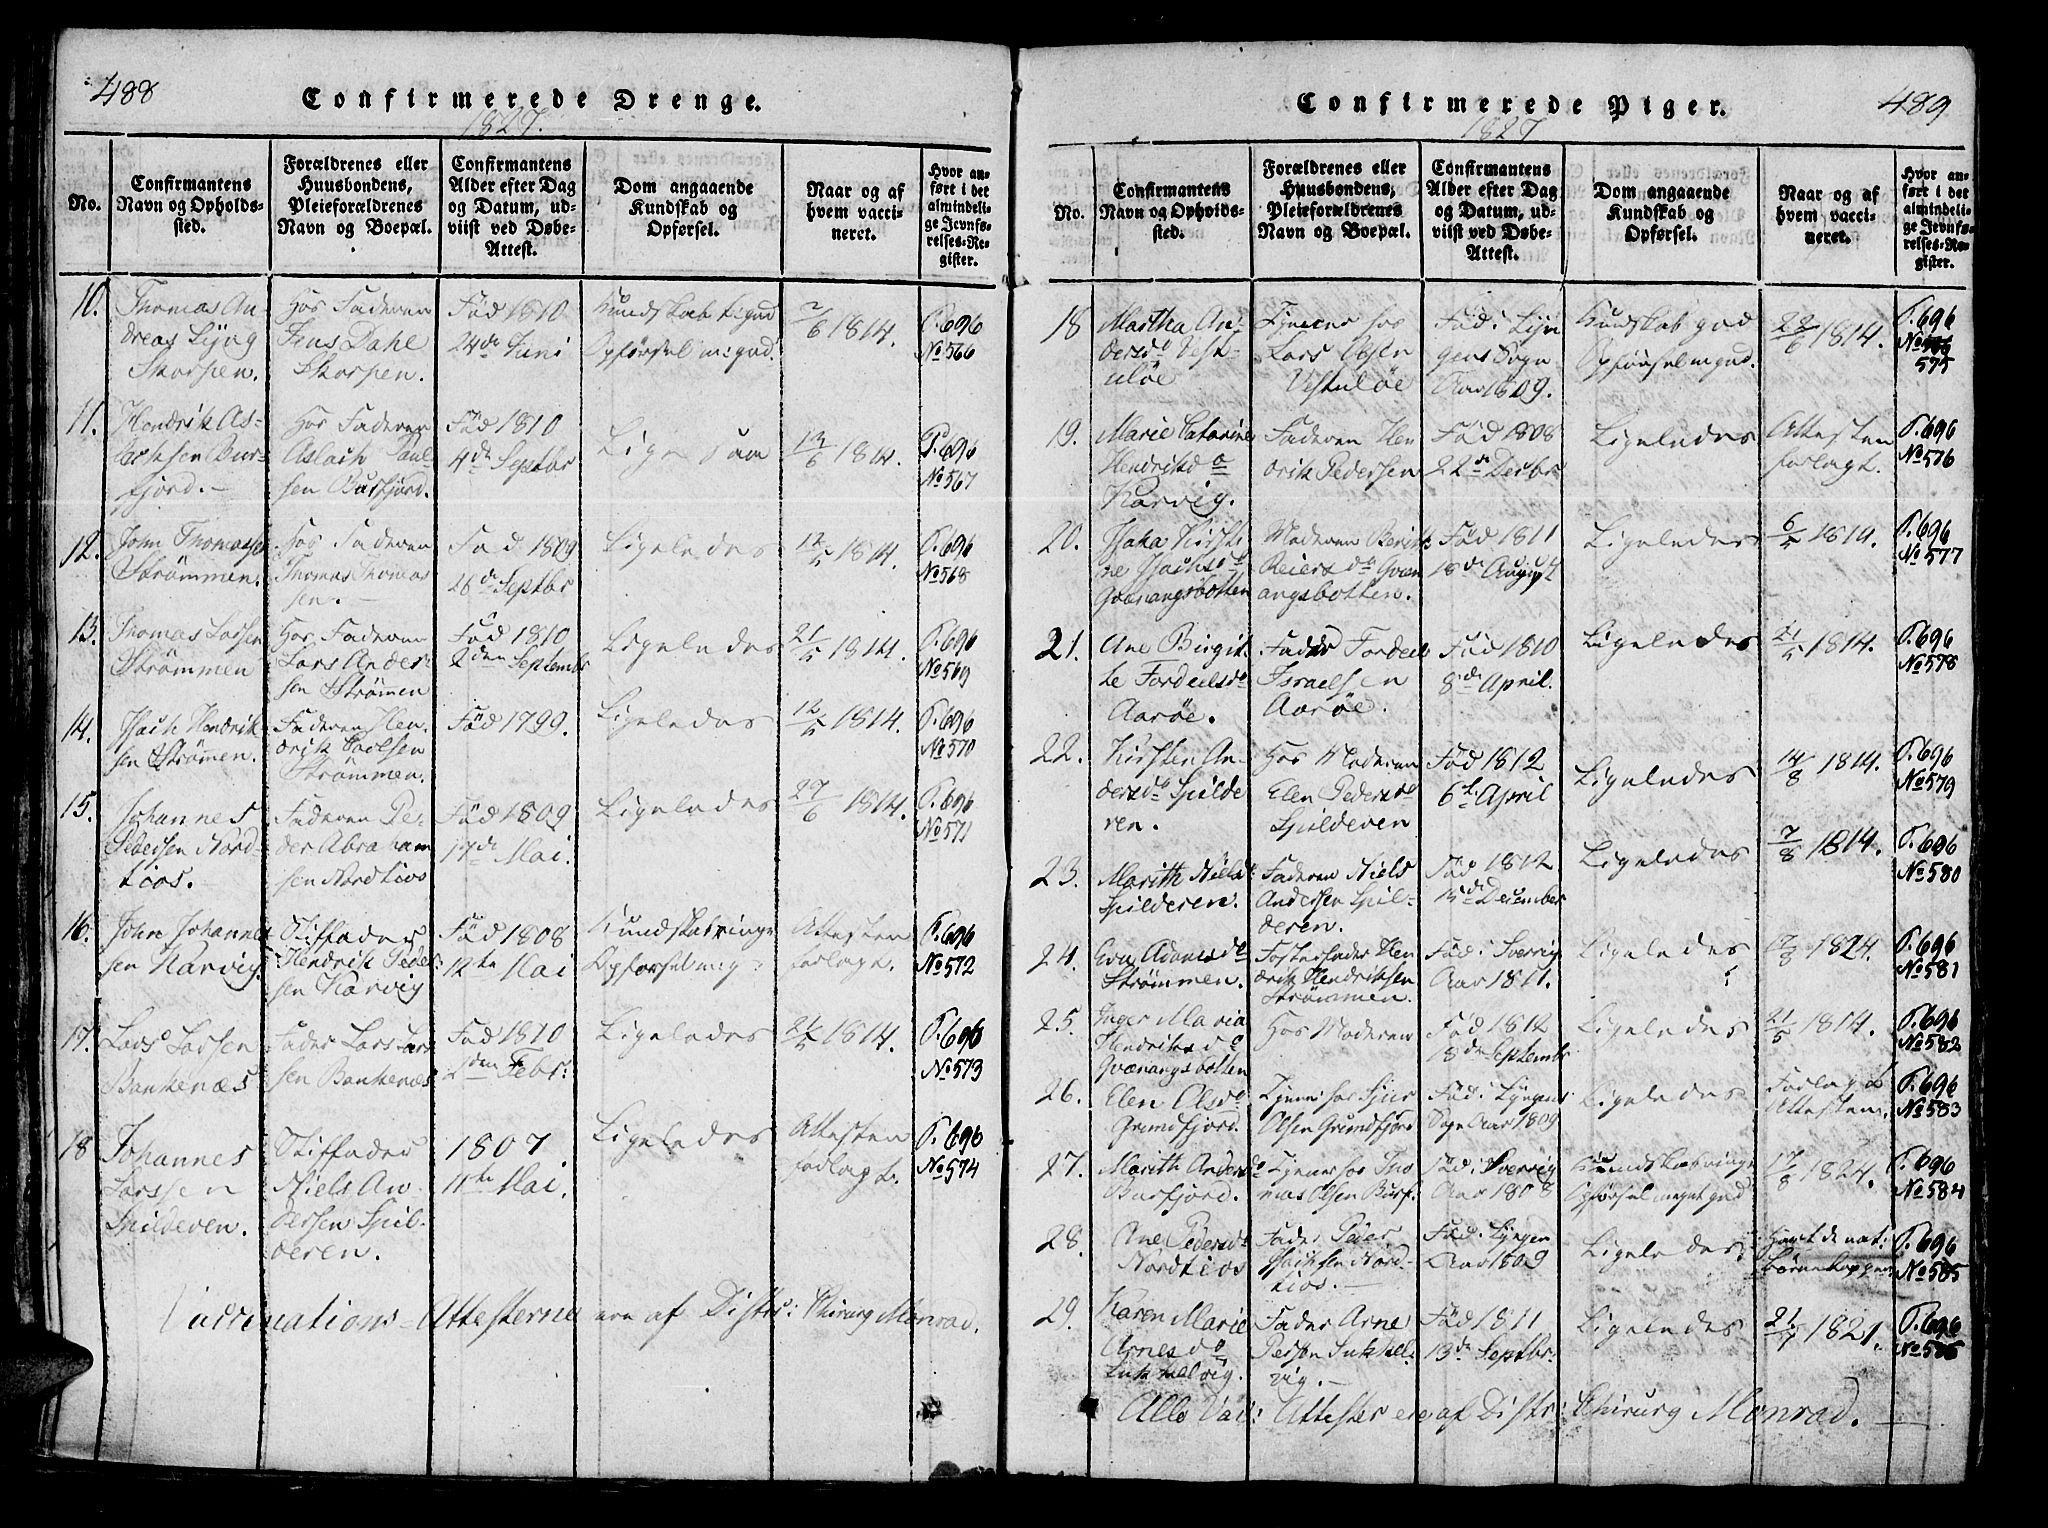 488
Confirmerede Drenge.
1827.
No.
Confirmantens
Navn og Opholds-
sted.
Forældrenes eller
Huusbondens,
Pleieforældrenes
Navn og Boepæl.
Confirmantens
Alder efter Dag
og Datum, ud-
viist ved Døbe-
Attest.
Dom angaaende
Kundskab og
Opførsel.
Naar og af
hvem vacci-
neret.
Hvor an-
ført i det
almindeli-
ge Jevnfø-
relses-Re-
gister.
10.
Thomas An-
dreas Lyng
Skorpen.
Hos Faderen
Jens Dahl
Skorpen.
Fød 1810
24de Juni
Kundskab t: god
Opførsel m: god
2/6 1814.
P. 696
No 566
11.
Hendrik As-
lachsen Bur-
fjord.
Hos Faderen
Aslach Paul-
sen Burfjord.
Fød 1810
4de Septbr
Ligesaa
12/6 1814.
P. 696
No 567
12.
John Thomasen
Strømmen.
Hos Faderen
Thomas Thomas
sen.
Fød 1809
26de Septbr
Ligeledes
12/5 1814.
P. 696
No 568
13.
Thomas Larsen
Strømmen
Hos Faderen
Lars Ander-
sen Strømen
Fød 1810
2den Septembr
Ligeledes
21/5 1814.
P. 696
No 569
14.
Isach Hendrik
sen Strømen.
Faderen Hen-
drik Poelsen
Strømmen.
Fød 1799.
Ligeledes
12/5 1814.
P. 696
No 570
15.
Johannes
Pedersen Nord-
tios.
Faderen Pe-
der Abraham
sen Nordtios
Fød 1809
17de Mai.
Ligeledes
27/6 1814.
P. 696
No 571
16.
John Johanne-
sen Karvig.
Stiffader
Hendrik Peder-
sen Karvig
Fød 1808
12te Mai
Kundskab ringe
Opførsel m: g:
Attesten
forlagt.
P. 696
No 572
17.
Lars Larsen
Bankenæs
Fader Lars Lar
sen Bankenæs
Fød 1810
2den Febr:
Ligeledes
21/5 1814.
P. 696
No 573
18
Johannes
Larsen
Spilderen.
Stiffader
Niels An
dersen Spil-
deren.
1807
11te Mai.
Ligeledes
Attesten
forlagt.
P. 696
No 574
Vaccinations-Attesterne ere af Distr: Chirurg Monrad.
489
Confirmerede Piger.
1827
No.
Confirmantens
Navn og Opholds-
sted.
Forældrenes eller
Huusbondens,
Pleieforældrenes
Navn og Boepæl.
Confirmantens
Alder efter Dag
og Datum, ud-
viist ved Døbe-
Attest.
Dom angaaende
Kundskab og
Opførsel.
Naar og af
hvem vacci-
neret.
Hvor an-
ført i det
almindeli-
ge Jevnfø-
relses-Re-
gister.
18
Martha An-
dersdr
Tjenens hos
Lars Olsen
Fød i Lyn
gens Sogn
Aar 1809.
Kundskab god
Opførsel m god.
22/6 1814.
P. 696
No
575
19.
Marie Catarine
Hendriksda
Karvig.
Faderen Hen
drik Pedersen
Fød 1808
22de Decbr
Ligeledes
Attesten
forlagt.
P. 696
No 576
20.
Kirsti-
ne Isachsd
Qvænangsbotten
Moderen Berith
Reiersda Qvæn
angsbotten.
Fød 1811
18de August
Ligeledes
6/5 1814.
P. 696
No 577
21.
Ane Birgit-
te Fordeelsda
Aarøe.
Fader Fordeel
Israelsen
Aarøe.
Fød 1810
8de April.
Ligeledes
21/5 1814.
P. 696
No 578
22.
Kirsten An-
dersda Spilde
ren.
Hos Moderen
Elen Pedersda
Spilderen
Fød 1812
6te April
Ligeledes
14/8 1814.
P. 696
No 579
23.
Marith Nielsd
Spilderen.
Faderen Niels
Andersen Spil-
deren.
Fød 1812
15de December
Ligeledes
7/8 1814.
P. 696
No 580
24.
Eva Adamsda
Strømmen.
Fosterfader Hen
drik Hendriksen
Strømmen.
Fød i Sverrig
Aar 1811.
Ligeledes
17/8 1824.
P. 696
No 581
25.
Inger Maria
Hendriksda
Qvænangsbotten
Hos Moderen
Fød 1812
18de Septembr
Ligeledes
21/5 1814.
P. 696
No 582
26.
Elen Olsda
Grundfjord.
Tjener hos Siur
Olsen Grundfjord
Fød i Lyngens
Sogn Aar 1809
Ligeledes
Forlagt
Attesten.
P. 696
No 583
27.
Marith Andersda
Burfjord.
Tjener hos Tho
mas Olsen Burf.
Fød i Sverrig
Aar 1808
Kundskab ringe
Opførsel meget god
17/8 1824.
P. 696
No 584
28.
Ane Pedersda
Nordtios
Fader Peder
Isachsen Nord-
tios.
Fød i Lyngen
Aar 1809
Ligeledes
Havt de nat:
Børnekopper
P. 696
No 585
29.
Karen Marie
Arnesda
Lukkelvig.
Fader Arne
Person Lukkel-
vig.
Fød 1811
13de Septbr.
Ligeledes
21/7 1821.
P. 696
No 586
Alle Vac: Attester ere af Distr: Chirurg Monrad.